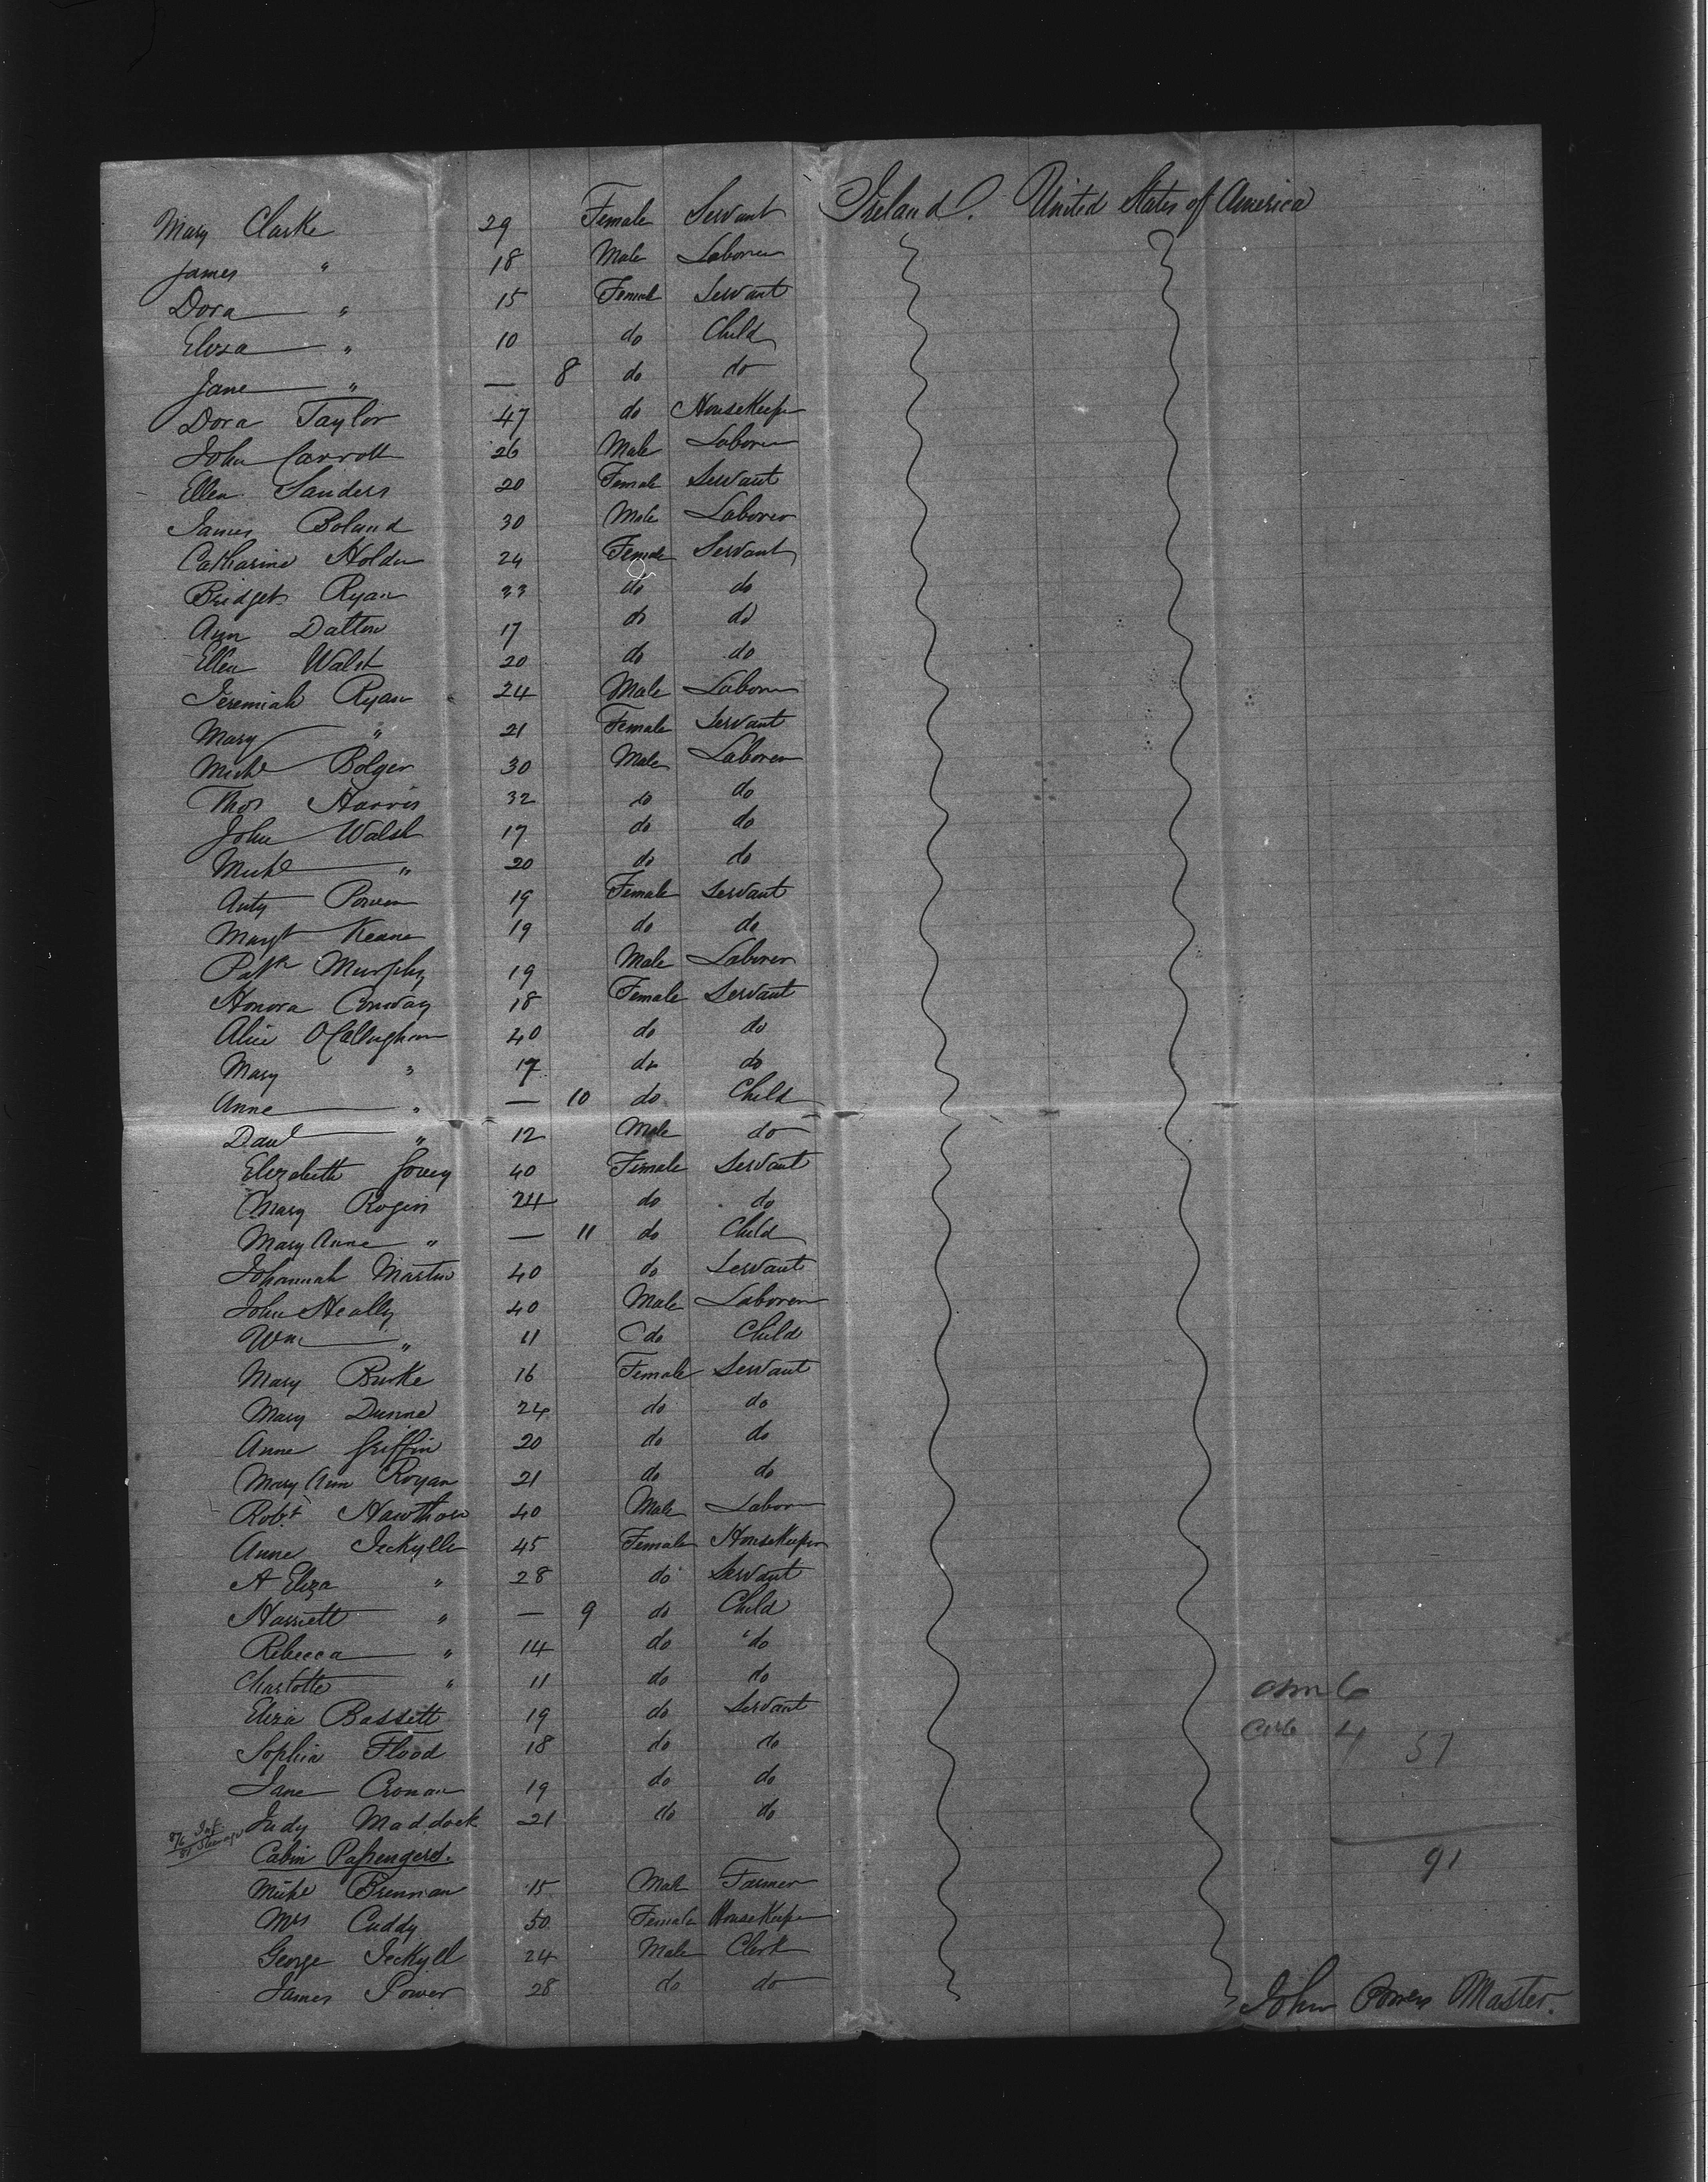 Mary Clarke 29 Female Servant Ireland. United States of America
James " 18 Male Laborer
Dora " 15 Female Servant
Eliza " 10 do Child
Jane " — 8 do do
Dora Taylor 47 do HouseKeeper
John Carroll 26 Male Laborer
Ellen Sanders 20 Female Servant
James Boland 30 Male Laborer
Catharine Holden 24 Female Servant
Bridget Ryan 23 do do
Ann Dalton 17 do do
Ellen Walsh 20 do do
Jeremiah Ryan 24 Male Laborer
Mary " 21 Female Servant
Michl Bolger 30 Male Laborer
Thos Harris 32 do do
John Walsh 17 do do
Michl " 20 do do
Anty Power 19 Female Servant
Margt Keane 19 do do
Patk Murphy 19 Male Laborer
Honora Conway 18 Female Servant
Alice OCallaghan 40 do do
Mary " 17 do do
Anne " — 10 do Child
Danl " 12 Male do
Elizabeth 40 Female Servant
Mary Rogin 24 do do
Mary Anne " — 11 do Child
Johannah Martin 40 do Servant
John Heally 40 Male Laborer
Wm " 11 do Child
Mary Burke 16 Female Servant
Mary Dunne 24 do do
Anne Griffin 20 do do
Mary Ann Rogan 21 do do
Robt Hawthorn 40 Male Labor
Anne Jeckyll 45 Female HouseKeeper
A Eliza " 28 do Servant
Harriett " — 9 do Child
Rebecca " 14 do do
Charlotte " 11 do do
Eliza Bassett 19 do Servant
Sophia Flood 18 do do
4 57
Jane Cronan 19 do do
Judy Maddock 21 do do
Cabin Passengers.
91
Mich Brennan 15 Male Farmer
Mrs Cuddy 50 Female HouseKeeper
George Jeckyll 24 Male Clerk
James Power 28 do do
John Power Master.